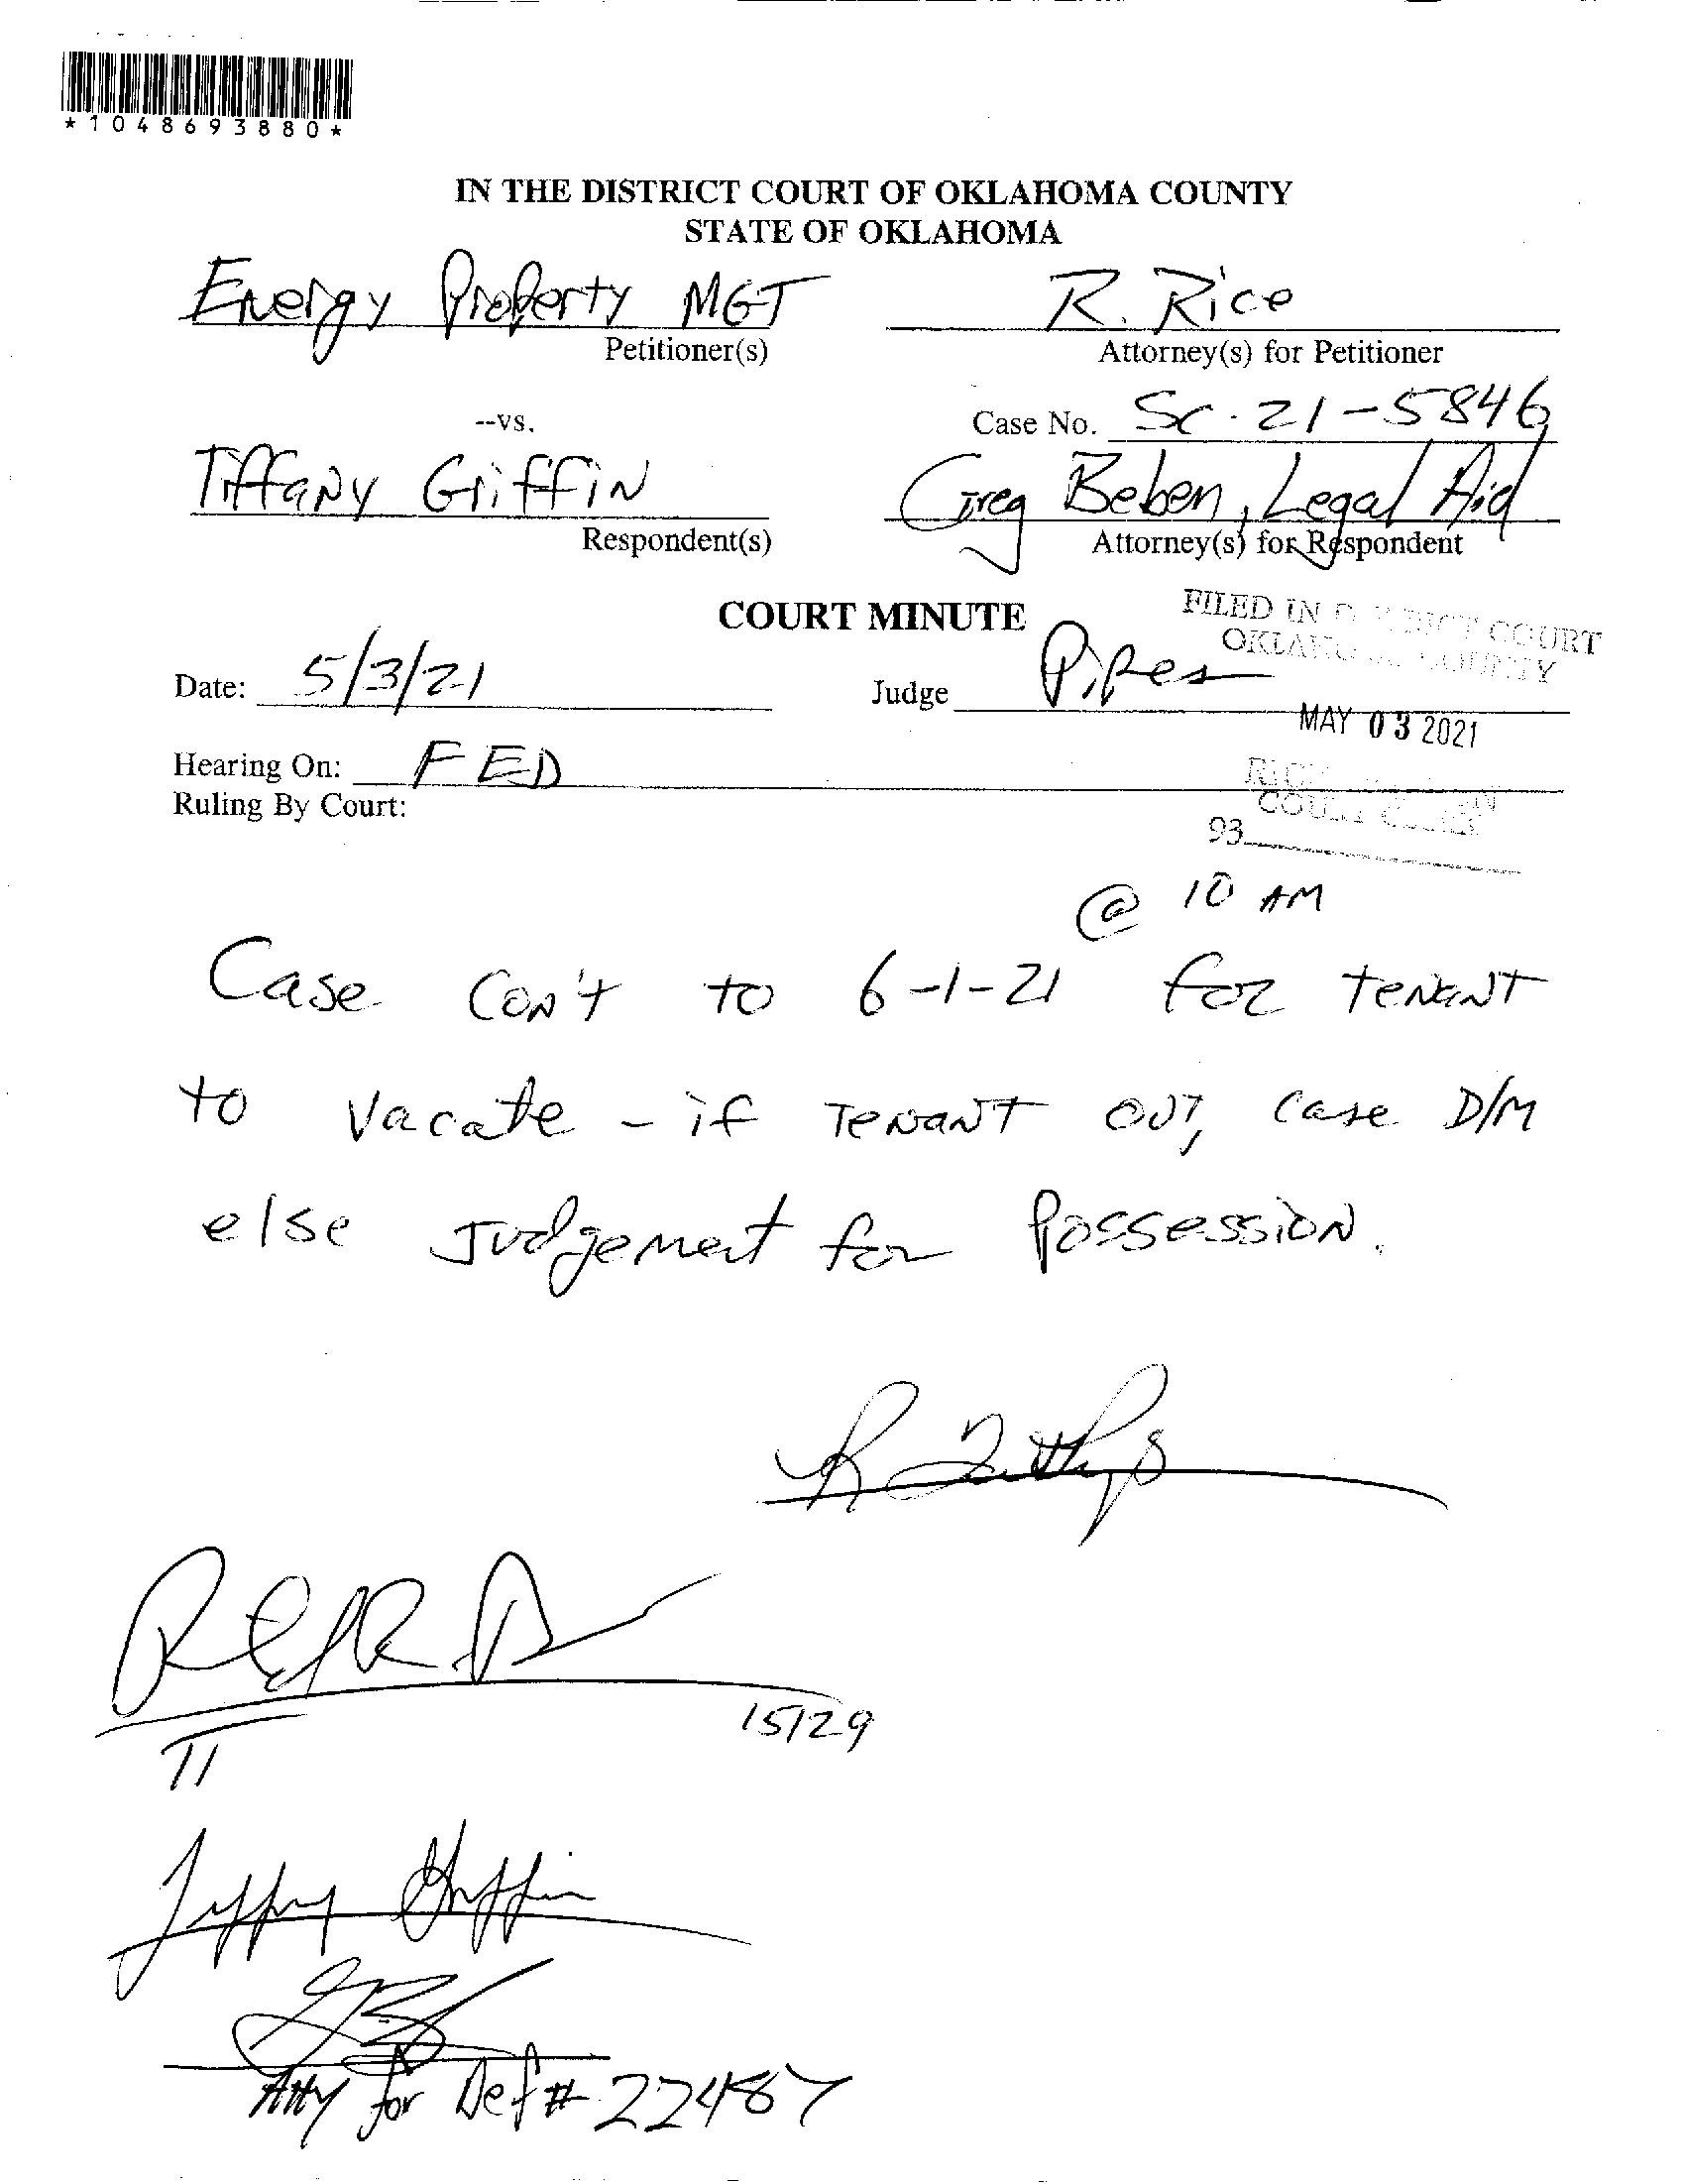 *1048693880*
IN THE DISTRICT COURT OF OKLAHOMA COUNTY
STATE OF OKLAHOMA
Energy Property MGT
Petitioner(s)
R. Rice
Attorney(s) for Petitioner
--vs.
Case No. SC-21-5846
Tiffany Griffin
Respondent(s)
Greg Beben, Legal Aid
Attorney(s) for Respondent
COURT MINUTE
FILED IN DISTRICT COURT
OKLAHOMA COUNTY
Date: 5/3/21
Judge Pipes
MAY 03 2021
Hearing On: FED
Ruling By Court:
COURT CLERK
93
@ 10 AM
Case Con't to 6-1-21 for tenant
to vacate - if Tenant out, case D/M
else Judgement for Possession.
15129
π
Tiffany Griffin
Atty for Def # 22487